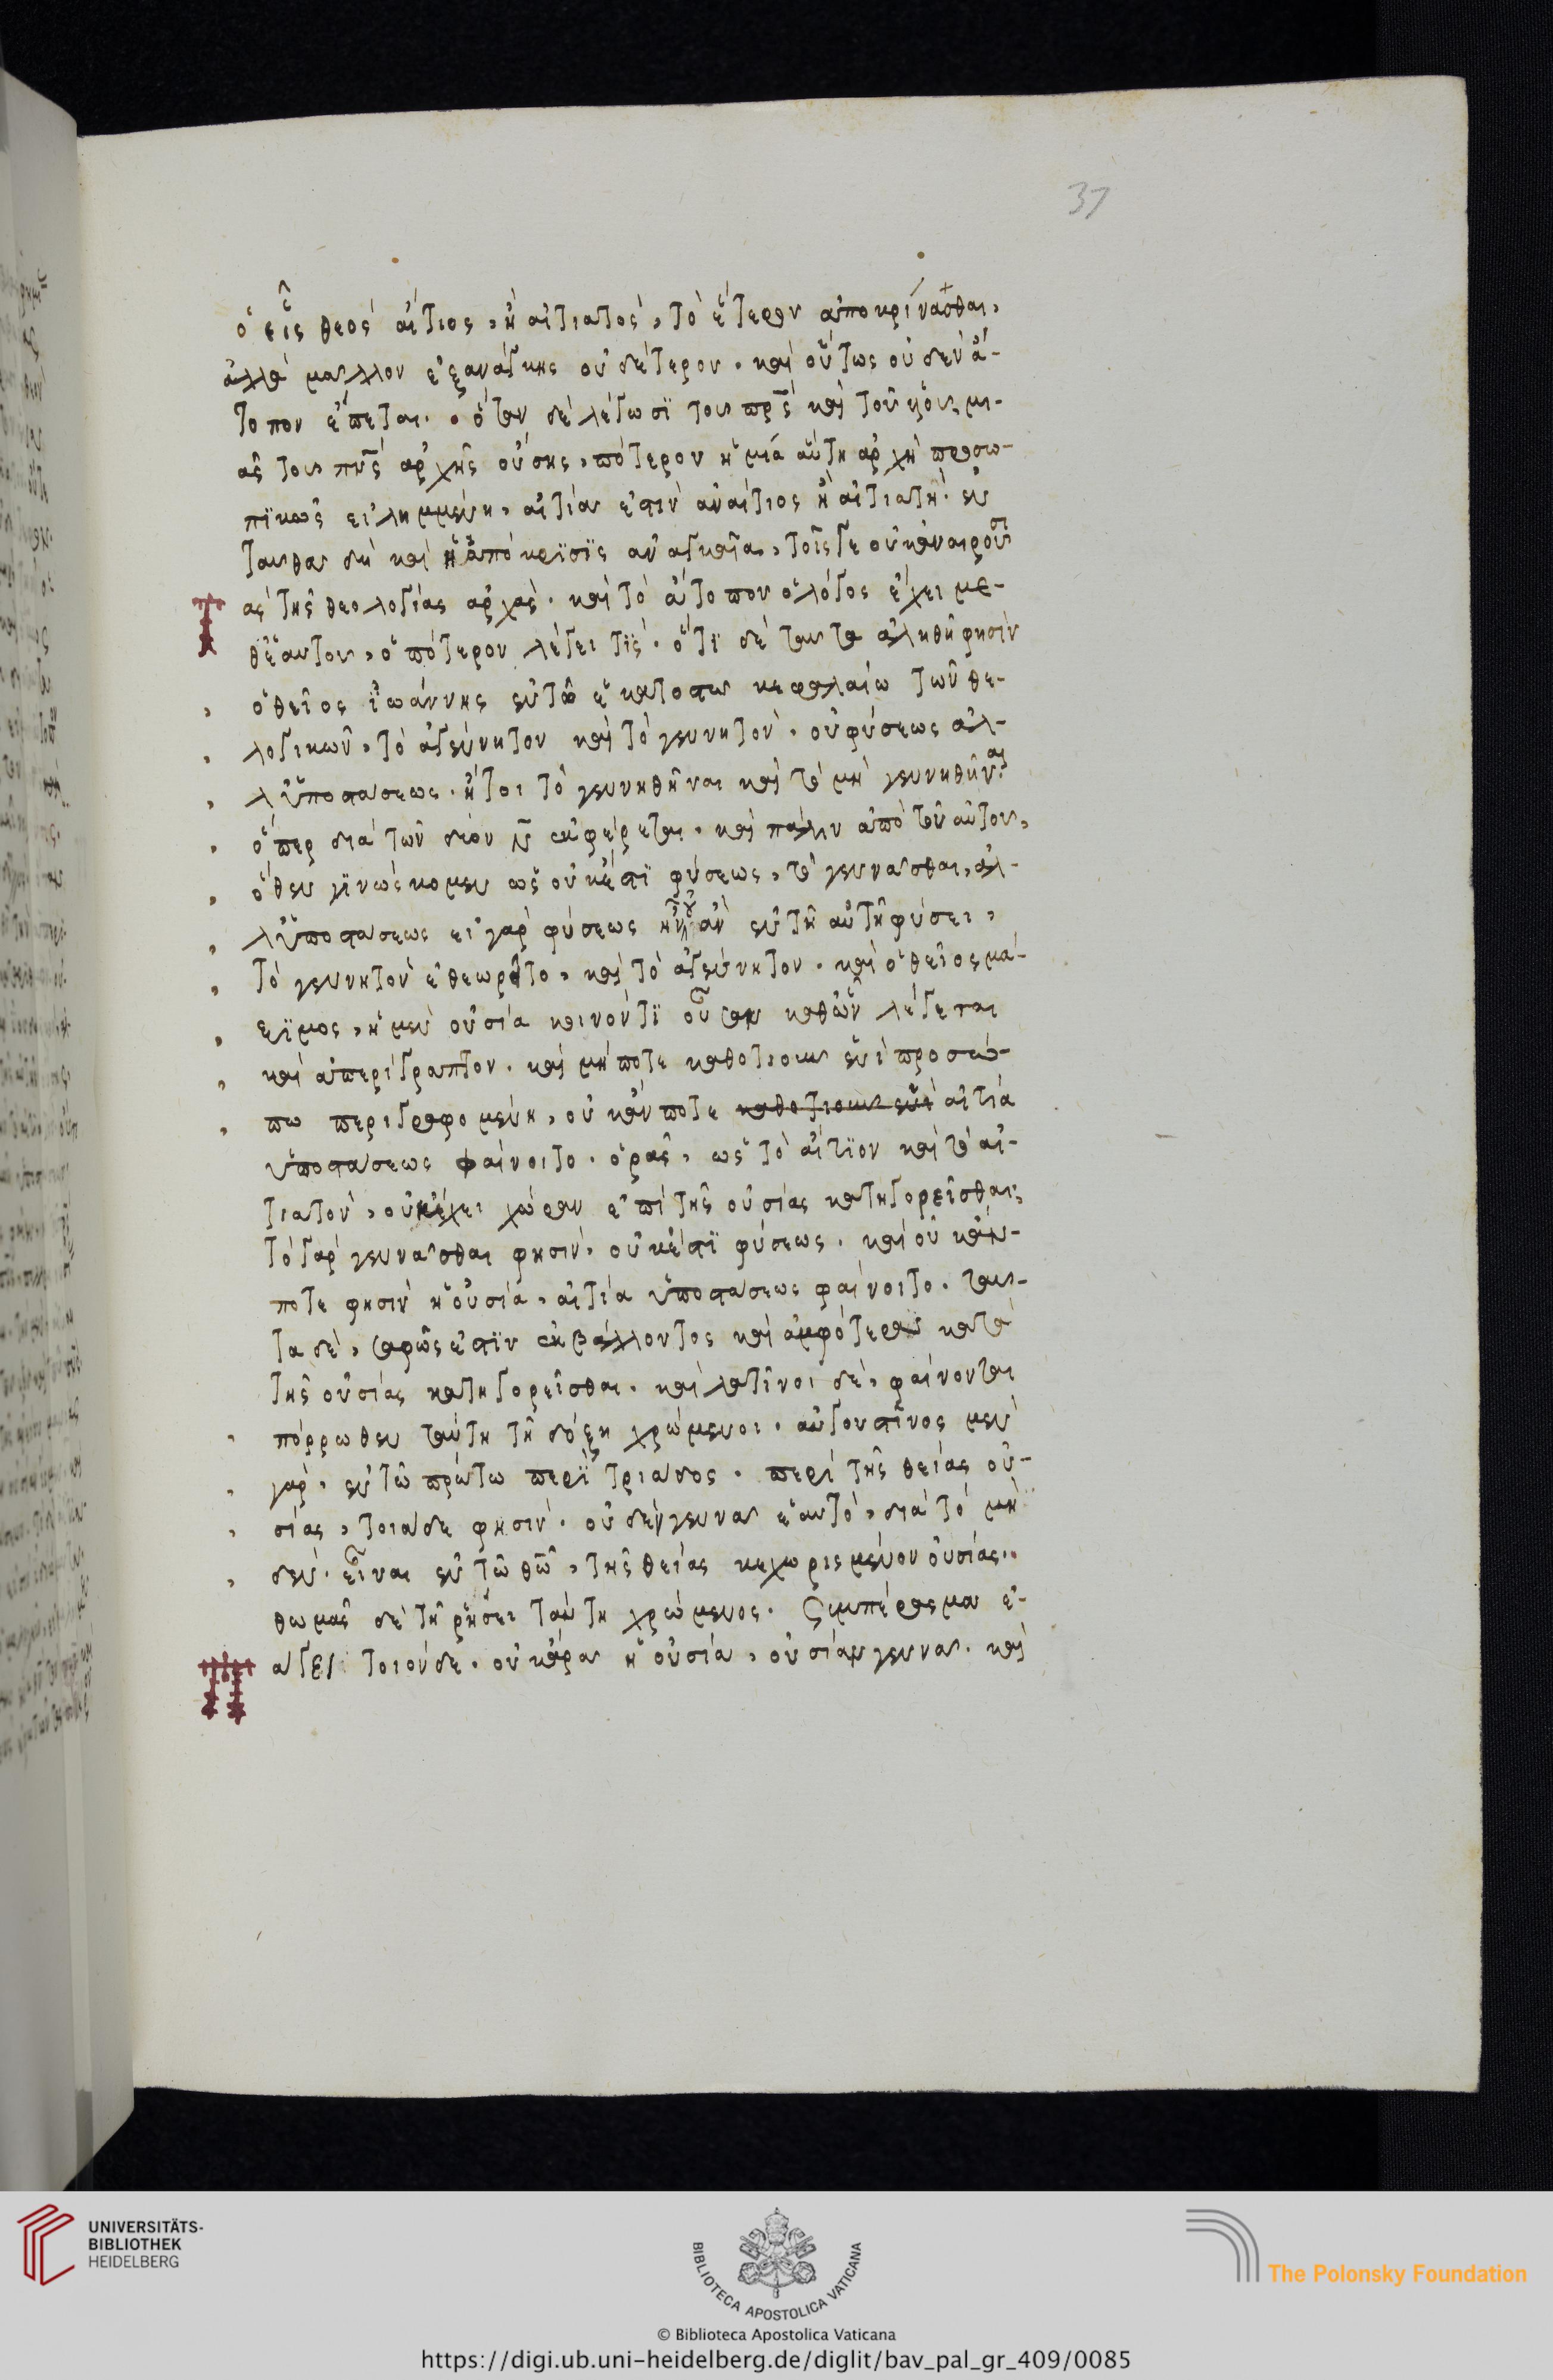 37
ὁ εἷς θεός αἴτιος, ἢ αἰτιατός, τὸ ἕτερον ἀποκρίνασθαι,
ἀλλὰ μᾶλλον ἐξανάγκης οὐδέτερον. καὶ οὕτως οὐδὲν ἄ-
τοπον ἕπεται. ὅταν δὲ λέγωσϊ τοῦ πρς καὶ τοῦ υἱοῦ, μι-
ᾶς τοῦ πνς ἀρχῆς οὔσης, πότερον ἡ μιά αὕτη ἀρχὴ προσω-
πϊκῶς εἰλημμένη, αἰτία ἐστὶν ἀναίτιος ἢ αἰτιατή. ἐν
ταῦθα δὴ καὶ ἡ ἀπόκρϊσϊς ἀναγκαῖα, τοῖς γε οὐκ ἀναιροῦσι
τὰς τῆς θεολογίας ἀρχάς. καὶ τὸ ἄτοπον ὁ λόγος ἔχει με-
θ' ἑαυτοῦ, ὁπότερον λέγει τϊς. ὅτϊ δὲ ταῦτα ἀληθῆ φησὶν
ὁ θεῖος ἰωάννης ἐν τῶ ἑκατοστῶ κεφαλαίω τῶν θε-
λογικῶν, τὸ ἀγέννητον καὶ τὸ γεννητόν. οὐ φύσεως ἀλ-
λ' ὑποστάσεως. ἤτοι τὸ γεννηθῆναι καὶ τὸ μὴ γεννηθῆναι
ὅπερ διὰ τῶν δύο νν ἐκφέρεται. καὶ πάλιν ἀπὸ τοῦ αὐτοῦ,
ὅθεν γϊνώσκομεν ὡς οὐκ ἔστϊ φύσεως, τὸ γεννᾶσθαι, ἀλ-
λ' ὑποστάσεως εἰ γὰρ φύσεως ἦν οὐκ ἂν ἐν τῆ αὐτῆ φύσει,
τὸ γεννητὸν ἐθεωρεῖτο, καὶ τὸ ἀγέννητον. καὶ ὁ θεῖος μά-
ξϊμος, ἡ μὲν οὐσία κοινόν τϊ οὖσα καθ' ὃν λέγεται
καὶ ἀπερίγραπτον. καὶ μήποτε καθοτιοῦν ἑνὶ προσώ-
πω περιγραφομένη, οὐκ ἄν ποτε καθοτιοῦν ἑνὶ αἰτία
ὑποστάσεως φαίνοιτο. ὁρᾶς, ὡς τὸ αἴτϊον καὶ τὸ αἰ-
τιατόν, οὐκ ἔχει χώραν ἐπὶ τῆς οὐσίας κατηγορεῖσθαι;
τὸ γὰρ γεννᾶσθαι φησίν, οὐκ ἔστϊ φύσεως. καὶ οὐκ ἄν-
ποτε φησὶν ἡ οὐσία, αἰτία ὑποστάσεως φαίνοιτο. ταῦ-
τα δὲ, σαφῶς ἐστϊν ἐκβάλλοντος καὶ ἀμφότερα κατὰ
τῆς οὐσίας κατηγορεῖσθαι. καὶ λατῖνοι δὲ, φαίνονται
πόρρωθεν ταύτη τῆ δόξη χρώμενοι. αὐγουστῖνος μὲν
γὰρ, ἐν τῶ πρώτω περϊ τριάδος. περὶ τῆς θείας οὐ-
σίας, τοιάδε φησίν. οὐδὲν γεννᾶ ἑαυτό, διὰ τὸ μη
δὲν. εἶναι ἐν τῶ θῶ, τῆς θείας κεχωρισμένον οὐσίας.
θωμᾶς δὲ τῆ ῥήσει ταύτη χρώμενος. ξυμπέρασμα ἐ-
πάγει τοιόνδε. οὐκ ἄρα ἡ οὐσία, οὐσίαν γεννᾶ. καὶ
UNIVERSITÄTS-
BIBLIOTHEK
HEIDELBERG
BIBLIOTECA APOSTOLICA VATICANA
The Polonsky Foundation
© Biblioteca Apostolica Vaticana
https://digi.ub.uni-heidelberg.de/diglit/bav_pal_gr_409/0085